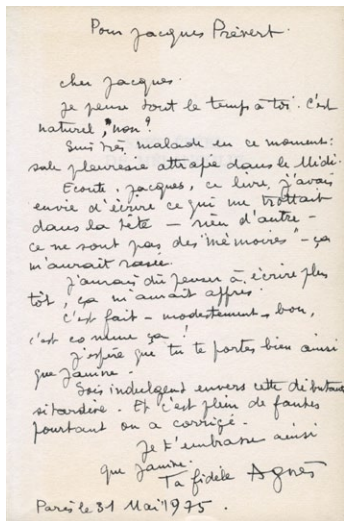 Pour Jacques Prévert.
cher Jacques.
je pense tout le temps à toi. C'est
naturel, non?
Suis très malade en ce moment:
sale pleurésie attrapée dans le Midi.
Ecoute, Jacques, ce livre, j'avais
envie d'écrire ce qui me trottait
dans la tête – rien d'autre –
ce ne sont pas des "mémoires" – ça
m'aurait rasée.
J'aurais dû penser à écrire plus
tôt, ça m'aurait appris.
C'est fait – modestement, bon,
c'est comme ça!
J'espère que tu te portes bien ainsi
que Janine.
Sois indulgent envers cette débutante
si tardive. Et c'est plein de fautes
pourtant on a corrigé.
Je t'embrasse ainsi
que Janine.
Ta fidèle Agnès
Paris le 31 Mai 1975.